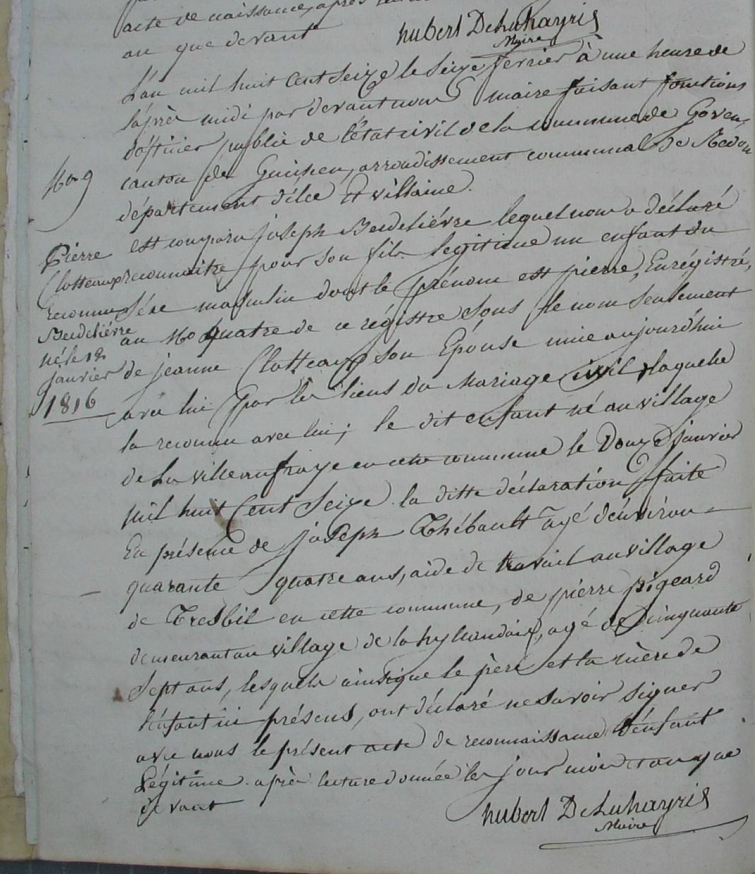 acte de naissance, après
an que devant
hubert Delahayris
Maire
L'an mil huit cent seize le seize fevrier à une heure de
l'après midi par devant nous maire faisant fonctions
d'officier public de l'état civil de la commune de Goven,
canton de Guichen, arrondissement communal de Redon
département d'ille et villaine.
No 9
Pierre
Clotteaux
reconnu
Berdeliévre
né le 12
janvier
1816
est comparu joseph Berdeliévre lequel nous a déclaré
reconnaitre pour son fils légitime un enfant du
séxe masculin dont le prénom est pierre, Enrégistré,
au No quatre de ce régistre sous le nom seulement
de jeanne Clotteaux son Epouse unie aujourd'hui
avec lui par les liens du Mariage civil, laquelle
la reconnu avec lui; le dit enfant né au village
de la ville en cette commune le Douze janvier
mil huit Cent Seize. la ditte déclaration faitte
En présence de joseph Thébault agé d'environ
quarante quatre ans, aide de travail au village
de Tresbil en cette commune, de pierre pigeard
demeurant au village de la agé de Cinquante
Sept ans, lesquels ainsi que le père et la mère de
l'enfant ici présens, ont déclaré ne savoir signer
avec nous le présent acte de reconnaissance d'enfant
Légitime. après lecture donnée les jour mois et an que
devant
hubert Delahayris
Maire